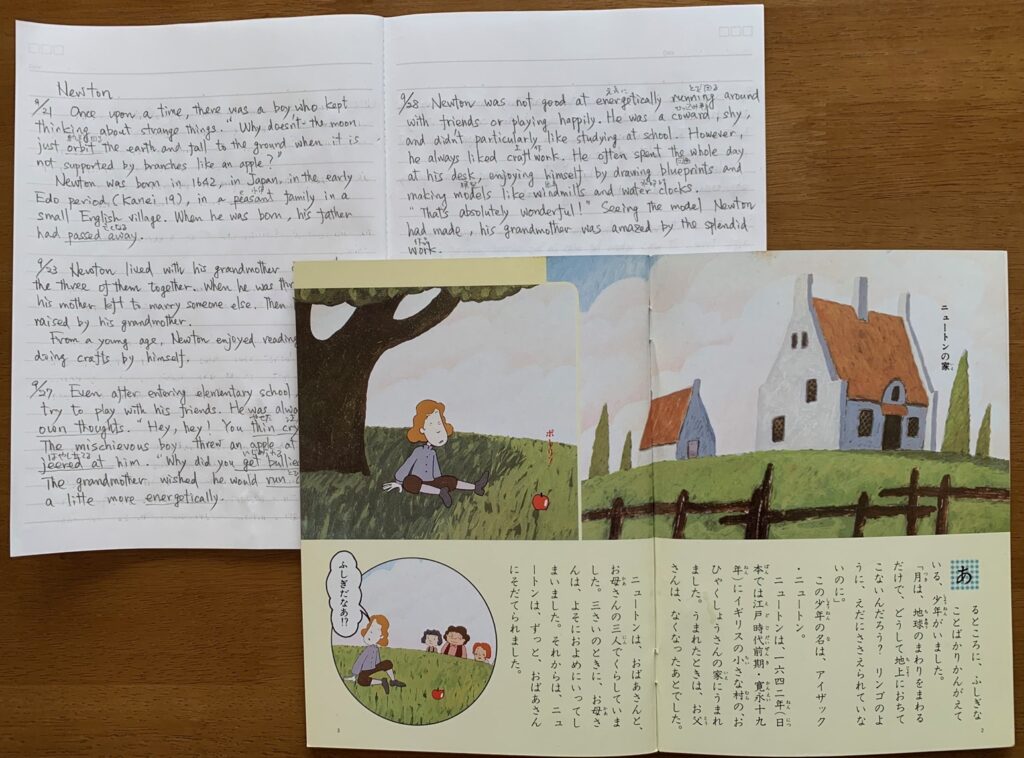 Newton
9/21 Once upon a time, there was a boy who kept
thinking about strange things. "Why doesn't the moon
just orbit the earth and fall to the ground when it is
not supported by branches like an apple?"
Newton was born in 1642, in Japan, in the early
Edo period (Kanei 19), in a peasant family in a
small English village. When he was born, his father
had passed away.
9/23 Newton lived with his grandmother
the three of them together. When he was
his mother left to marry someone else. Then
raised by his grandmother.
From a young age, Newton enjoyed reading
doing crafts by himself.
9/27 Even after entering elementary school
try to play with his friends. He was
own thoughts. "Hey, hey! You thin
The mischievous boy threw an apple at
jeered at him. "Why did you get
The grandmother wished he would run
a little more energetically.
9/28 Newton was not good at energetically running around
with friends or playing happily. He was a coward, shy,
and didn't particularly like studying at school. However,
he always liked craftwork. He often spent the whole day
at his desk, enjoying himself by drawing blueprints and
making models like windmills and water clocks.
"That's absolutely wonderful!" Seeing the model Newton
had made, his grandmother was amazed by the splendid
work.
ニュートンの家
あ
るところに、ふしぎな
ことばかりかんがえて
いる、少年がいました。
「月は、地球のまわりをまわる
だけで、どうして地上におちて
こないんだろう? リンゴのよ
うに、えだにささえられていな
いのに」
この少年の名は、アイザック
・ニュートン。
ニュートンは、一六四二年(日
本では江戸時代前期・寛永十九
年)にイギリスの小さな村の、お
ひゃくしょうさんの家にうまれ
ました。うまれたときは、お父
さんは、なくなったあとでした。
2
ポトリッ
ニュートンは、おばあさんと、
お母さんの三人でくらしていま
した。三さいのときに、お母さ
んは、よそにおよめにいってし
まいました。それからは、ニュ
ートンは、ずっと、おばあさん
にそだてられました。
ふしぎだなあ!?
3